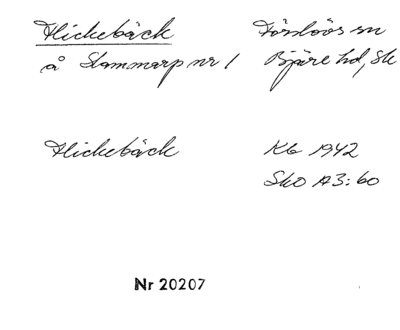 Flickebäck Förslövs sn
å Slammarp nr 1 Bjäre hd, Sk
Flickebäck Kb 1942
Sko A3:60
Nr 20207